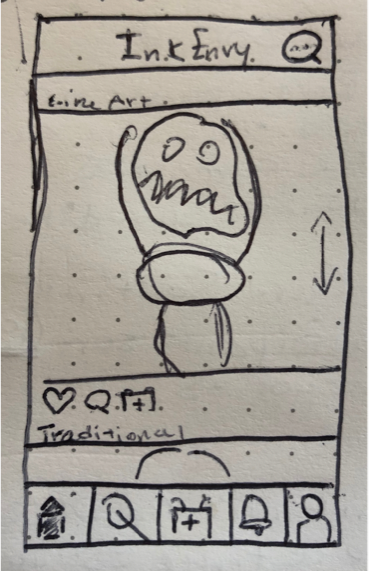 Ink Envy
Line Art
Traditional